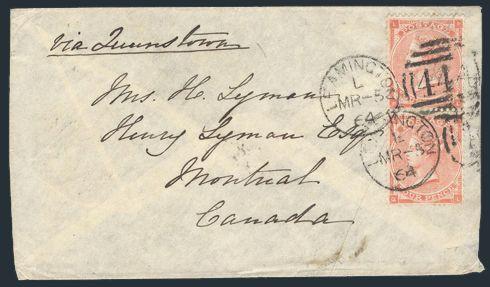 via Queenstown
Mrs. H. Lyman
Henry Lyman Esq
Montreal
Canada
POSTAGE
LEAMINGTON
L
MR-5
64
44
LEAMINGTON
L
MR-5
64
FOUR PENCE